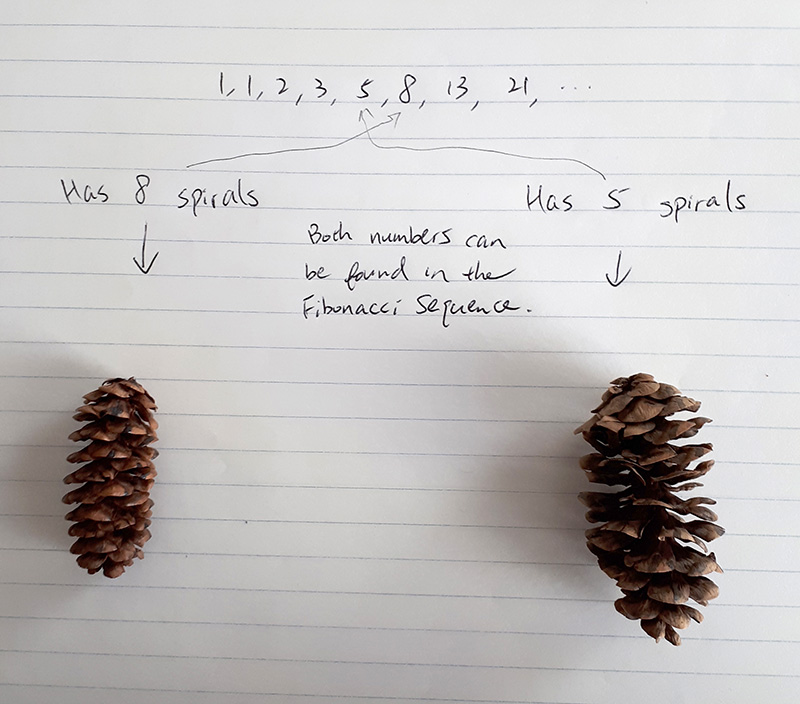 1, 1, 2, 3, 5, 8, 13, 21, ...
Has 8 spirals
Has 5 spirals
Both numbers can
be found in the
Fibonacci Sequence.